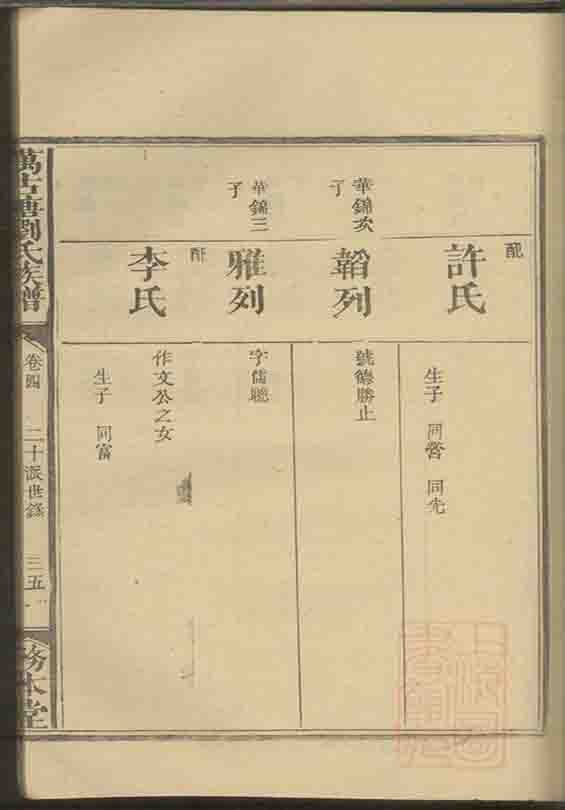 配
許氏
生子 同營 同先
華錦次子
韜列
號德勝止
華錦三子
雅列
字儒聰
配
李氏
作文公之女
生子 同富
萬古塘劉氏族譜
卷四
二十派世錄
三五
務本堂